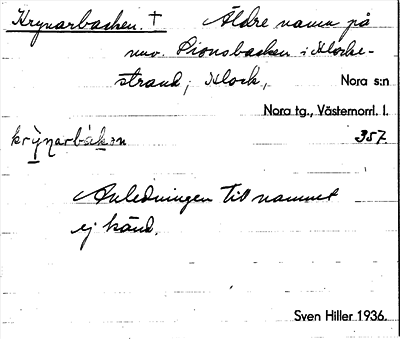 Krynarbacken. † Äldre namn på
nuv. Pionsbacken i Klocke-
strand, Klock, Nora s:n
Nora tg., Västernorrl. l.
krỳnarbàkən 357.
Anledningen till namnet
ej känd.
Sven Hiller 1936.